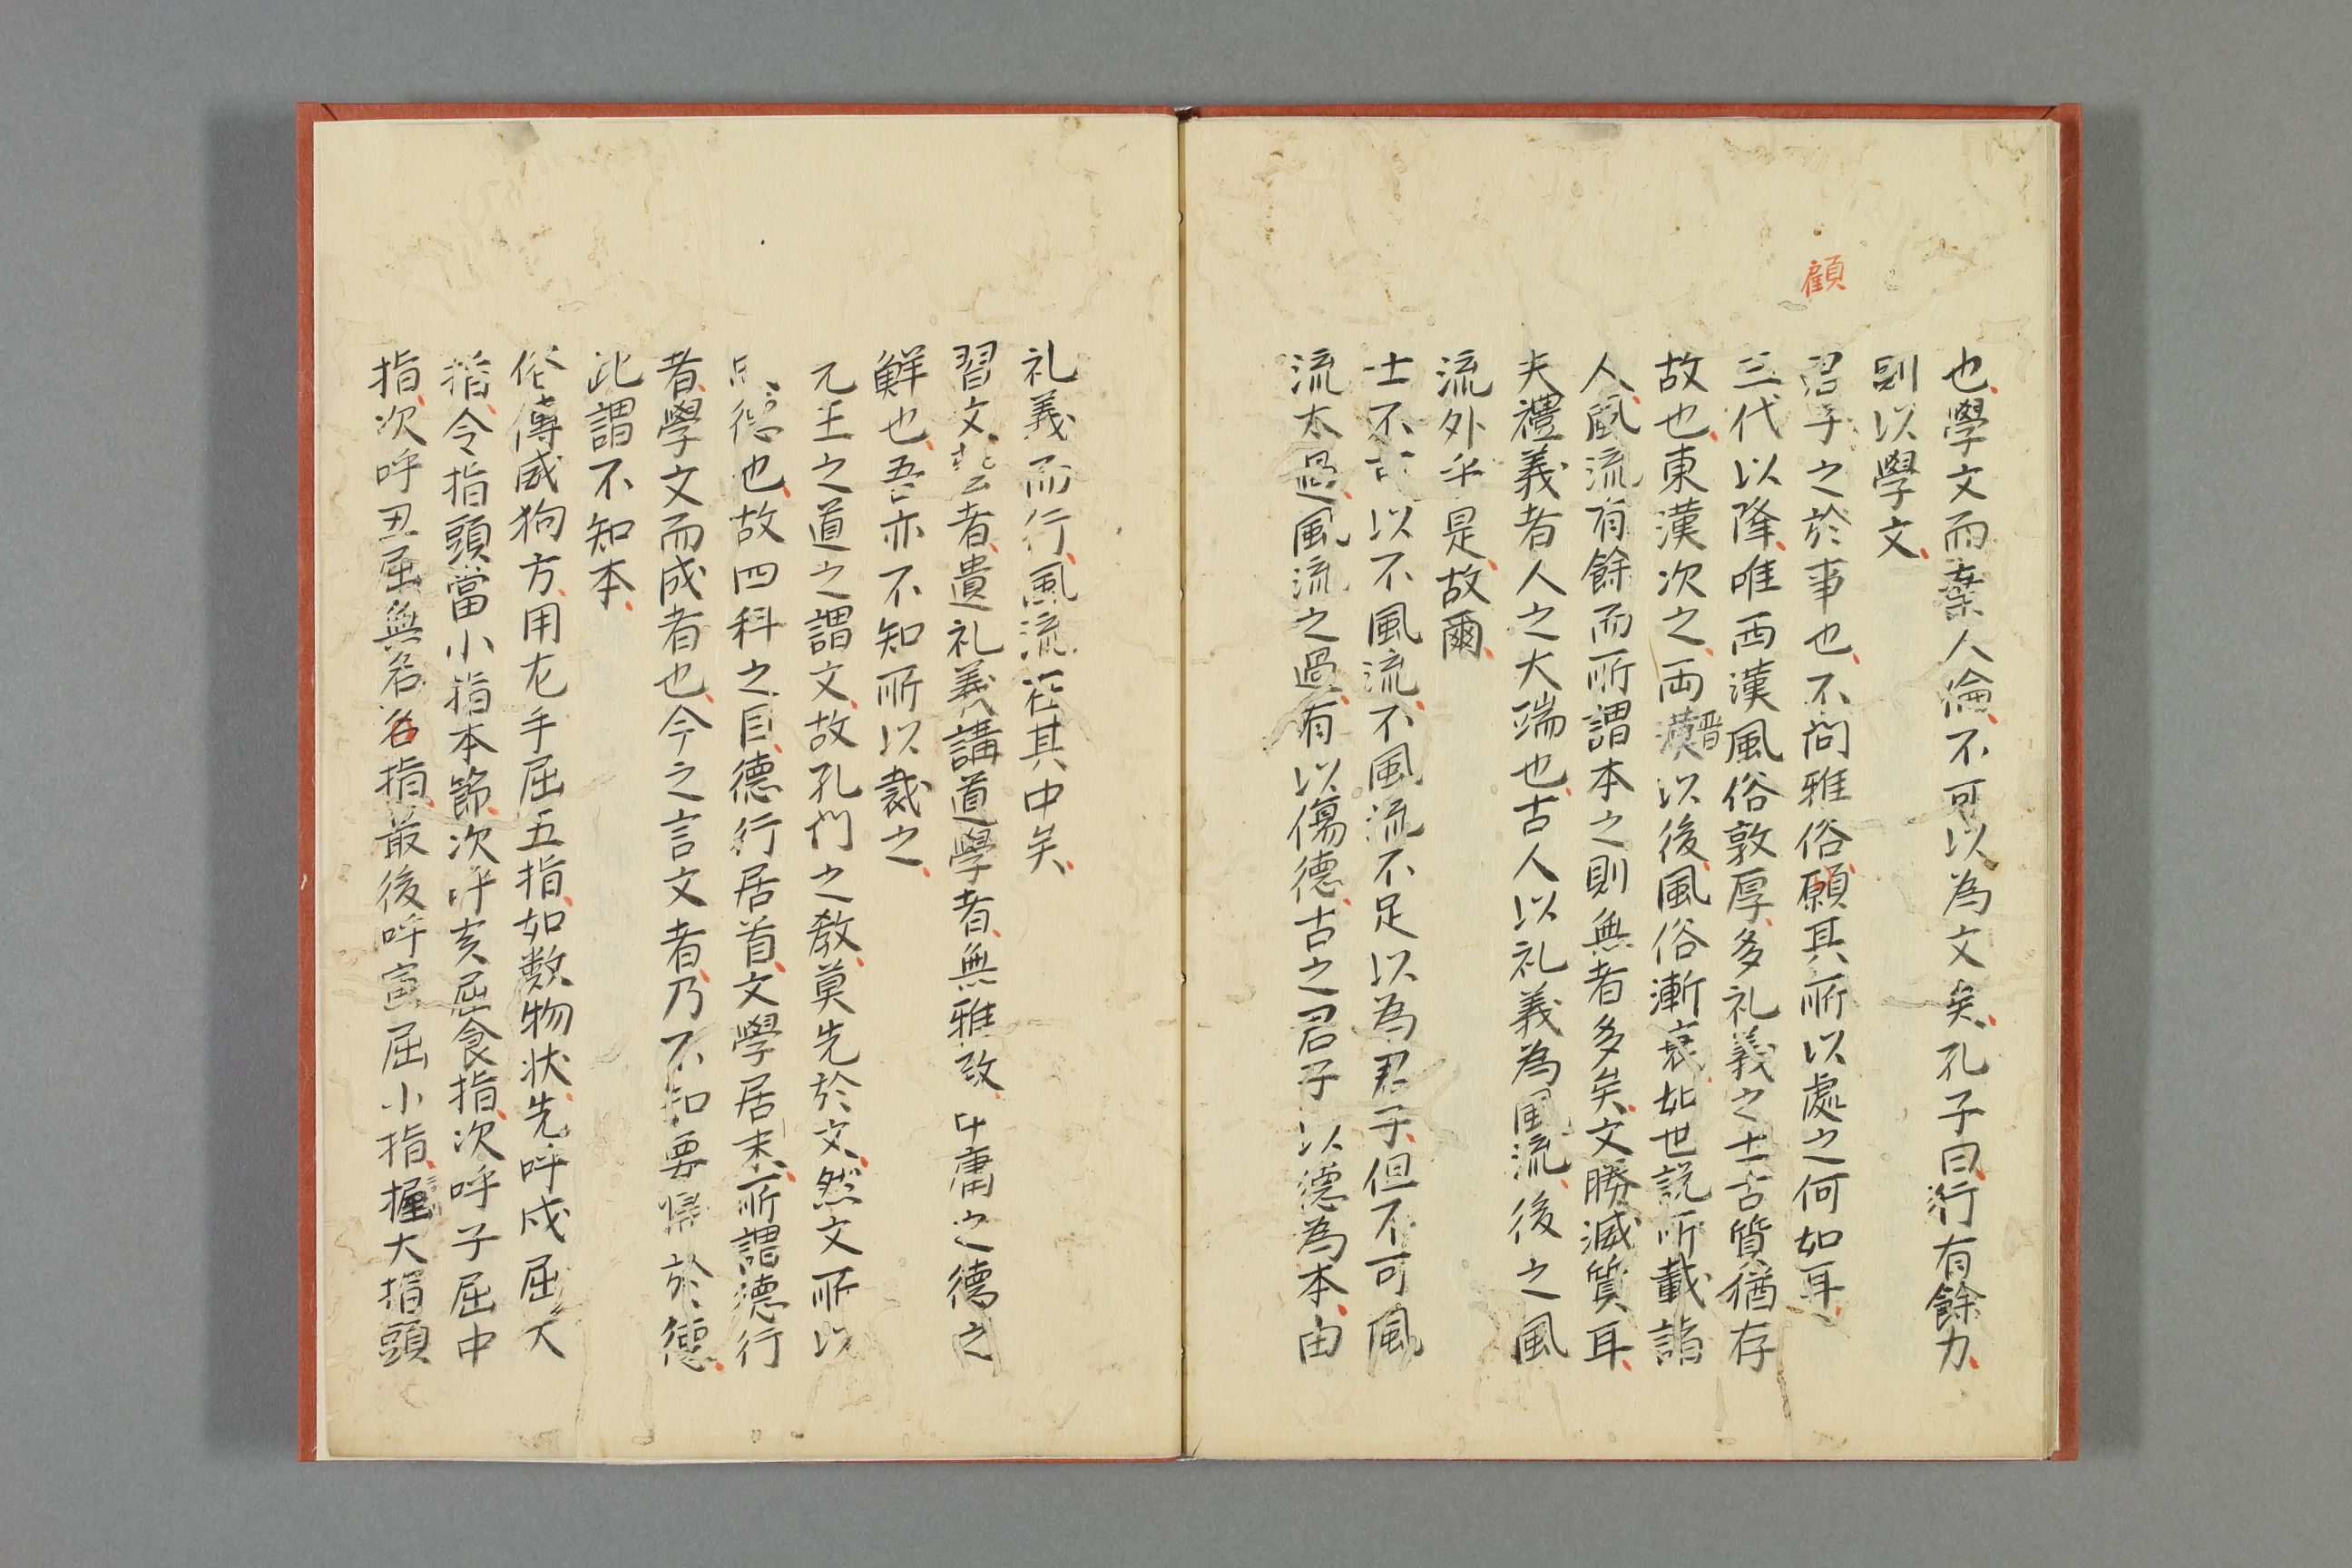 顧
也學文而棄人倫不可以為文矣孔子曰行有餘力
則以學文
君子之於事也不問雅俗願其所以處之何如耳
三代以降唯西漢風俗敦厚多礼義之士古質猶存
故也東漢次之両漢晋以後風俗漸衰如世説所載諸
人風流有餘而所謂本之則無者多矣文勝滅質耳
夫禮義者人之大端也古人以礼義為風流後之風
流外乎是故爾
士不可以不風流不風流不足以為君子但不可風
流太過風流之過有以傷德古之君子以德為本由
礼義而行風流在其中矣
習文芸者遺礼義講道學者無雅致中庸之德之
鮮也吾亦不知所以裁之
元王之道之謂文故孔門之教莫先於文然文所以
德也故四科之目德行居首文學居末所謂德行
者學文而成者也今之言文者乃不知要帰於德
此謂不知本
俗傳威狗方用左手屈五指如数物状先呼戌屈大
指令指頭當小指本節次呼亥屈食指次呼子屈中
指次呼丑屈無名名指最後呼寅屈小指握大指頭